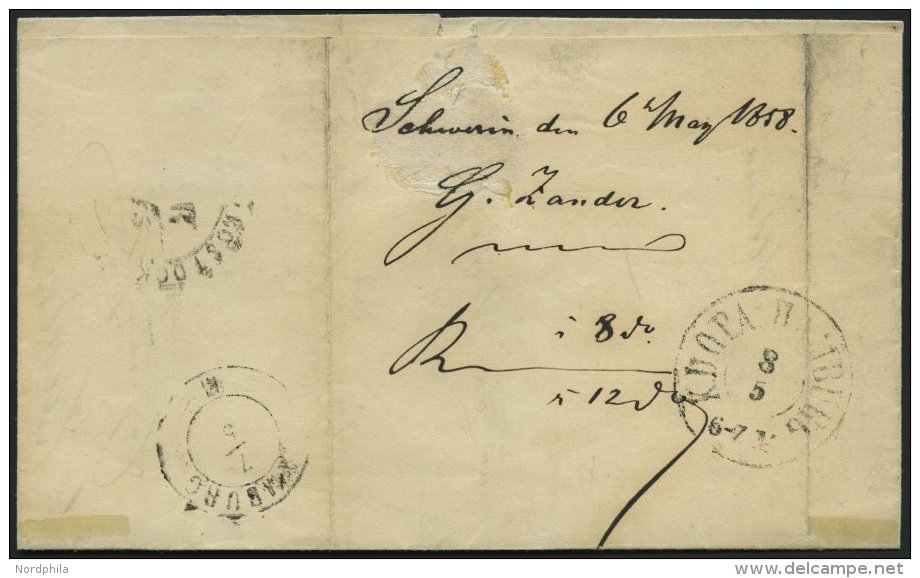 Schwerin den 6t May 1858.
G. Zander.
R
i 8 do
12 do
K.D.O.P.A. HAMBURG
8
5
6-7 N
ROSTOCK
HAMBURG
Nordphila
www.delcampe.net